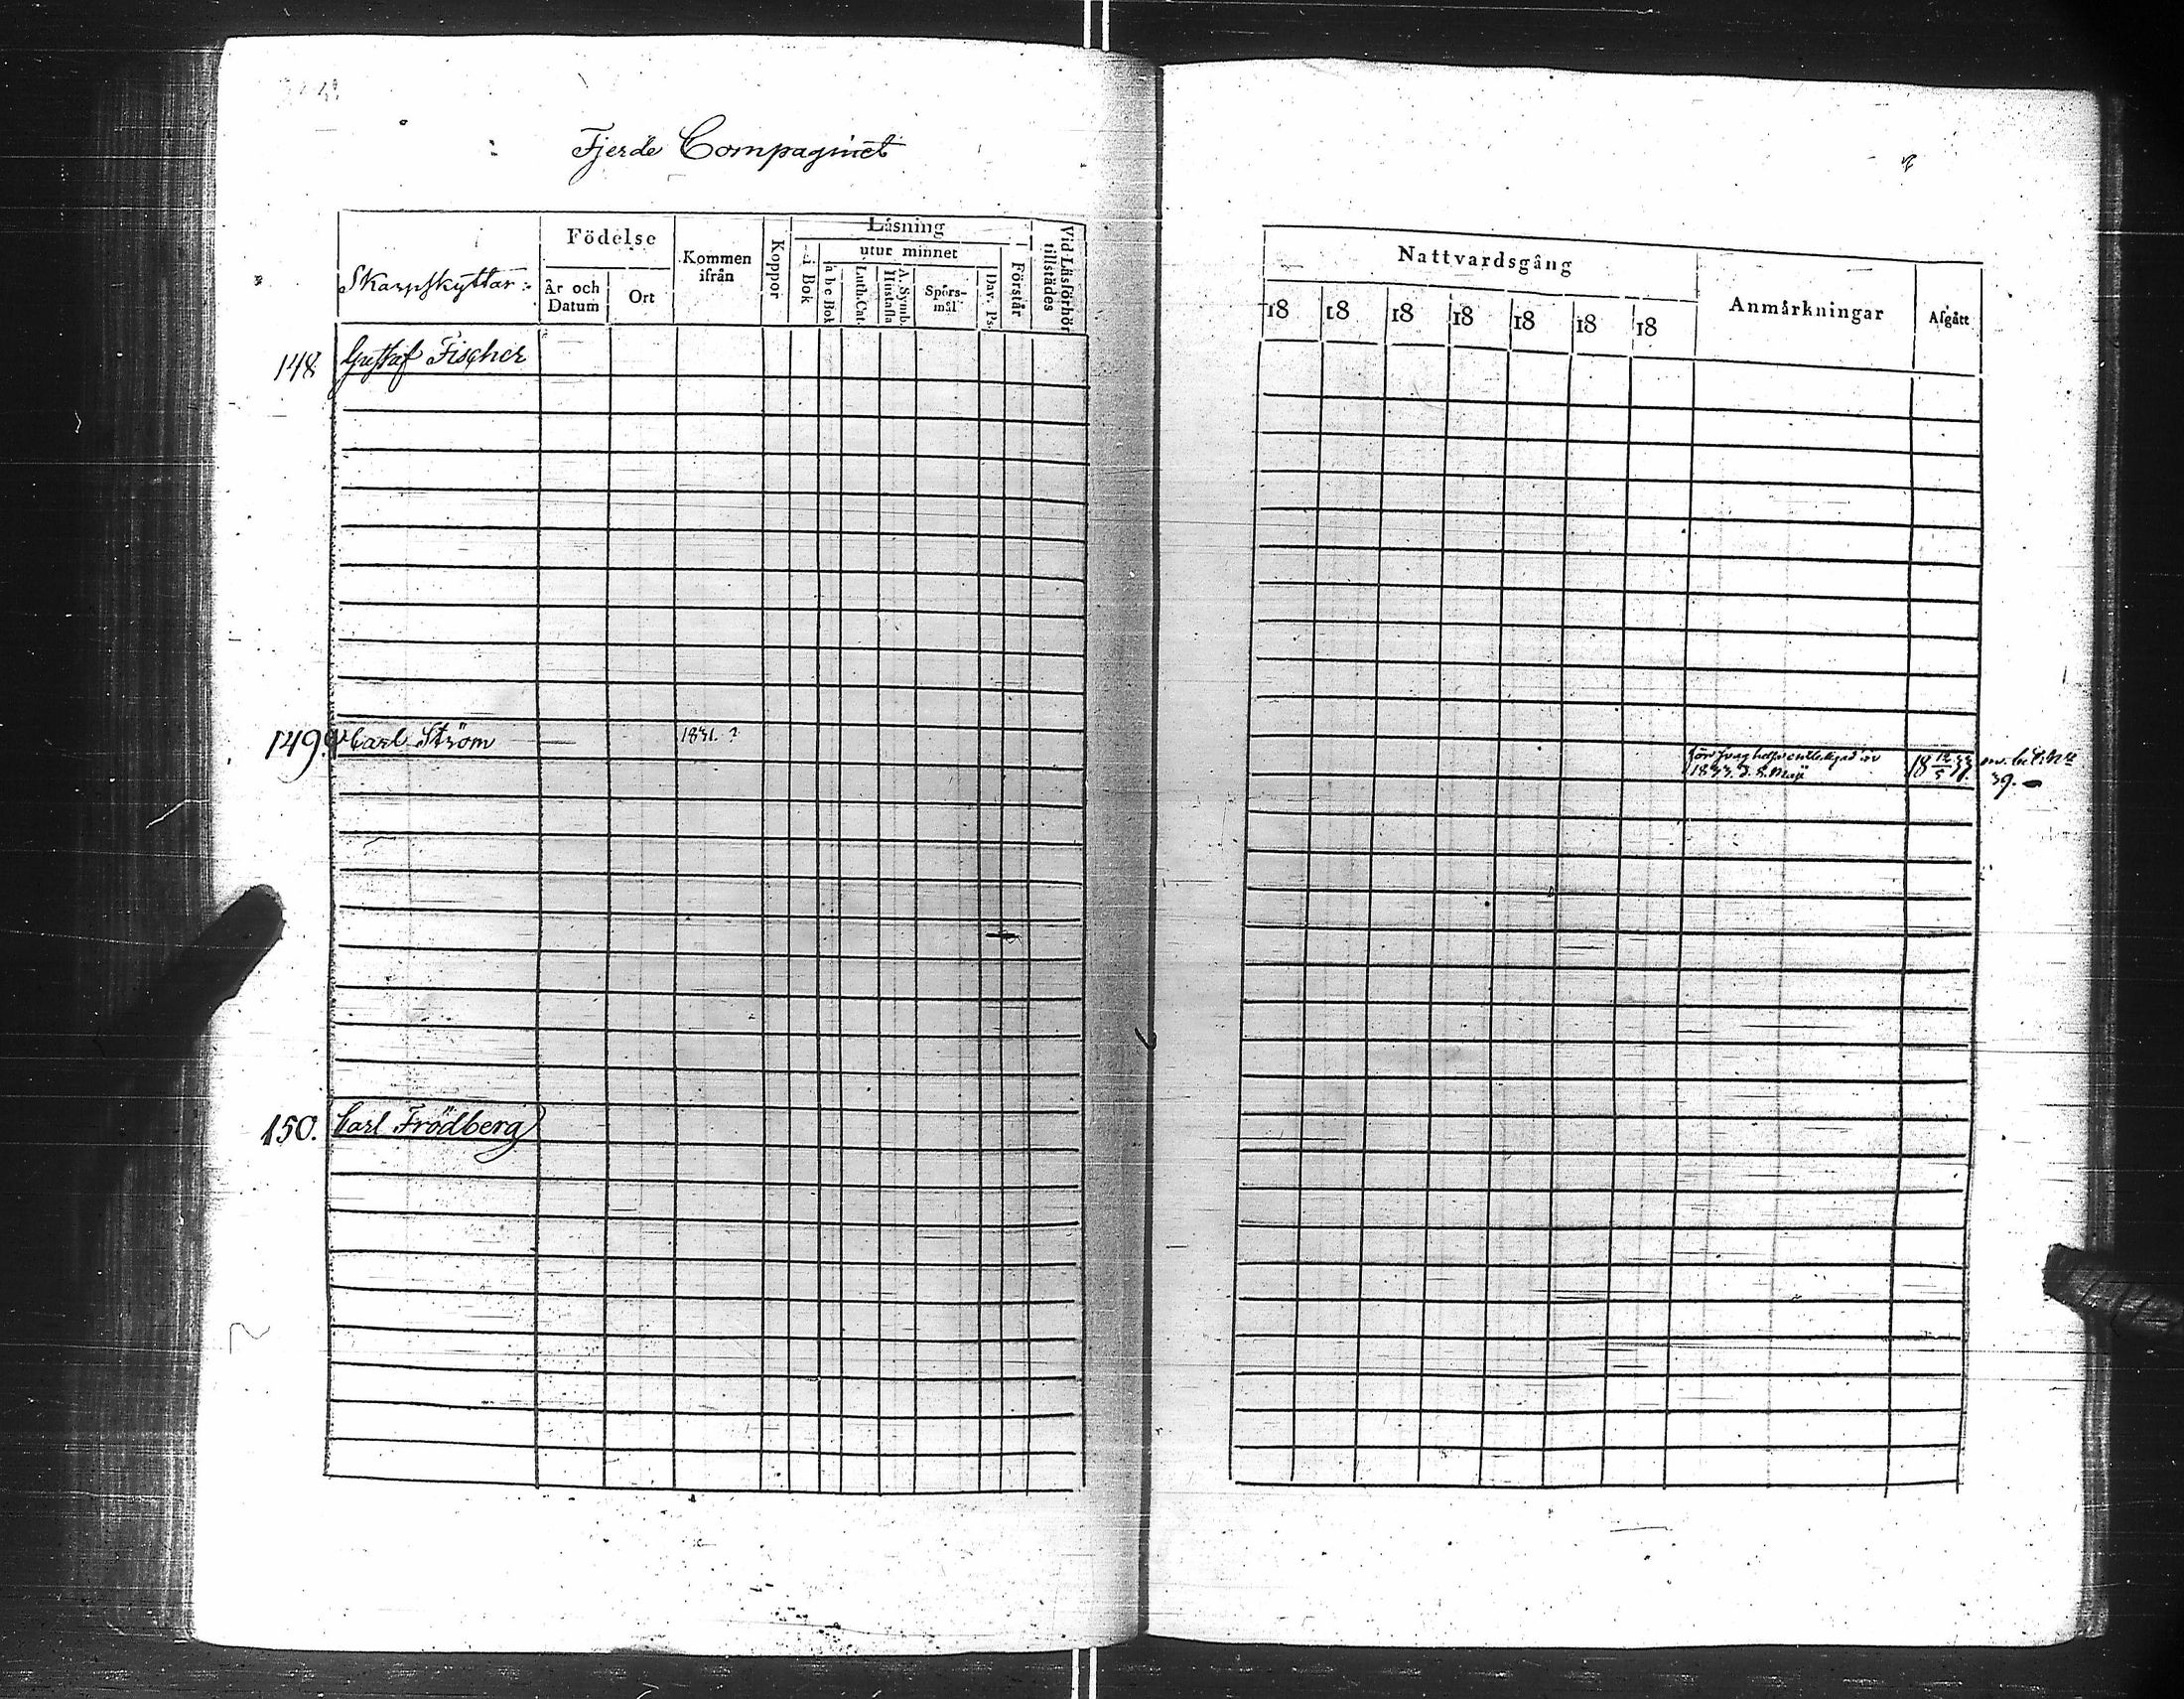 Fjerde Compagniet
Skarpskyttar:
Födelse
År och Datum
Ort
Kommen ifrån
Koppor
Läsning
i Bok
utur minnet
a b c Bok
Luth. Cat.
A. Symb. Hustafla
Spörsmål
Dav. Ps.
Förstår
Vid Läsförhör tillstädes
Nattvardsgång
18 18 18 18 18 18 18
Anmärkningar
Afgått
148 Gustaf Fischer
149. Carl Ström 1831. ?
1833. d. 8. Maji
18 12/5 33.
39.
150. Carl Frödberg